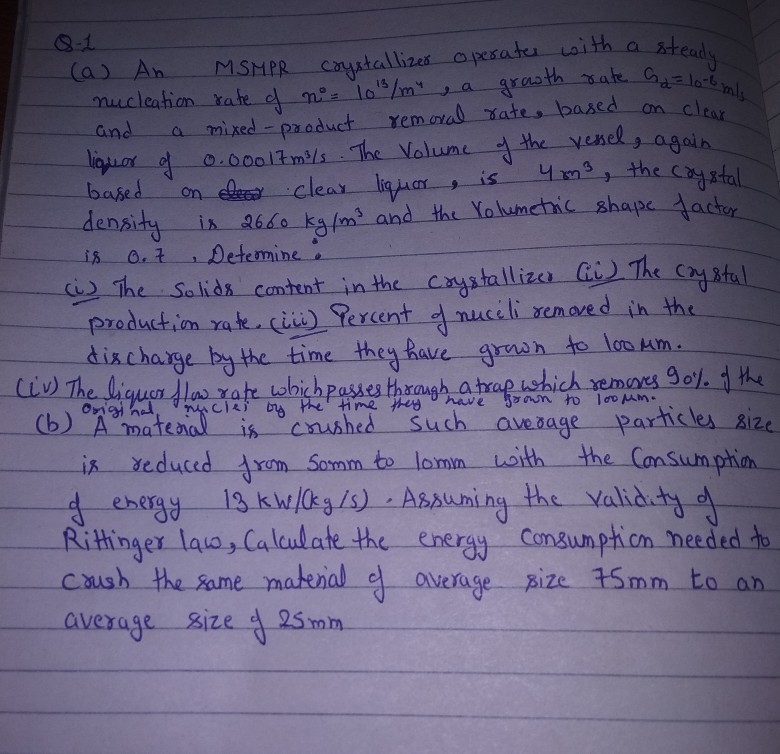 Q-1
(a) An MSMPR crystallizer operates with a steady
nucleation rate of n° = 10¹³/m⁴, a growth rate Gd = 10⁻⁸ m/s
and a mixed-product removal rate, based on clear
liquor of 0.00017 m³/s. The Volume of the vessel, again
based on clear liquor, is 4 m³, the crystal
density is 2660 kg/m³ and the Volumetric shape factor
is 0.7. Detemine :
(i) The Solids content in the crystallizer (ii) The crystal
production rate. (iii) Percent of nuclili removed in the
discharge by the time they have grown to 100 μm.
(iv) The liquor flow rate which passes through a trap which removes 90% of the
original nuclei by the time they have grown to 100 μm.
(b) A material is crushed Such average particles size
is reduced from 50mm to 10mm with the Consumption
of energy 13 kW/(kg/s). Assuming the validity of
Rittinger law, Calculate the energy Consumption needed to
crush the same material of average size 75mm to an
average size of 25mm